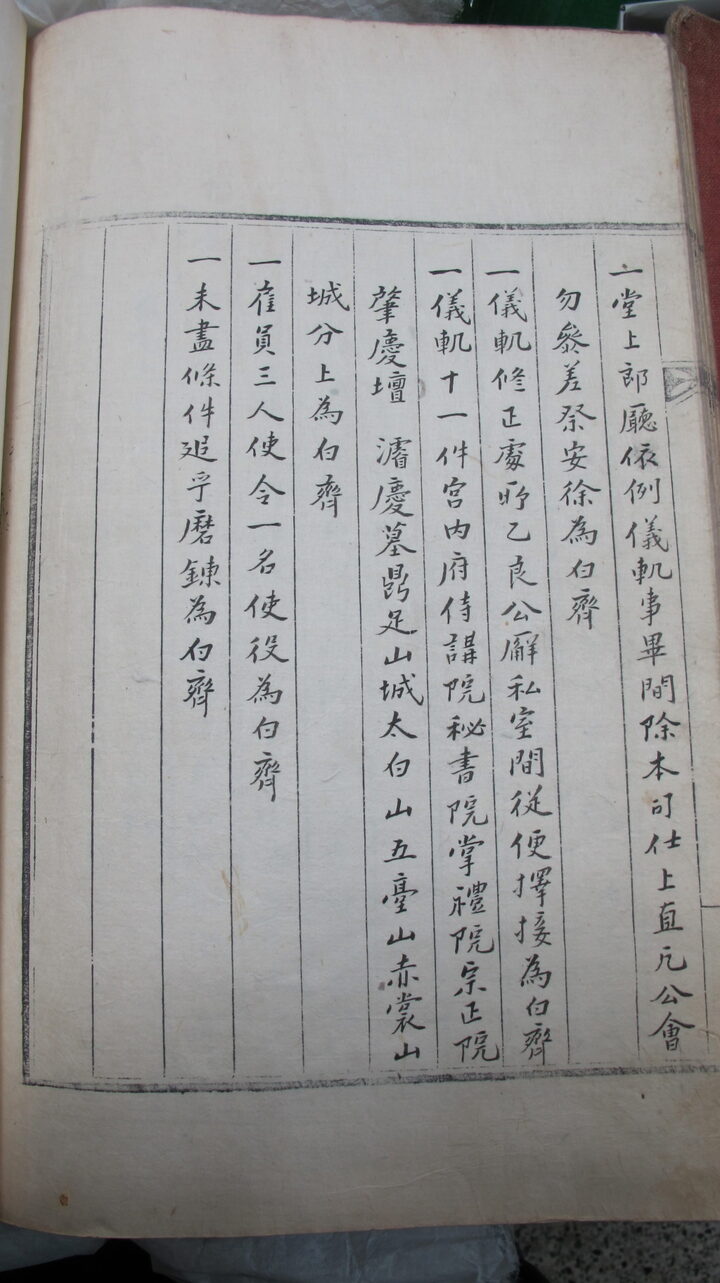 一堂上郎廳依例儀軌事畢間除本司仕上直凡公會
勿參差祭安徐為白齊
一儀軌修正處所乙良公廨私室間從便擇接為白齊
一儀軌十一件宮內府侍講院秘書院掌禮院宗正院
肇慶壇 濬慶墓鼎足山城太白山五臺山赤裳山
城分上為白齊
一雇員三人使令一名使役為白齊
一未盡條件追乎磨鍊為白齊